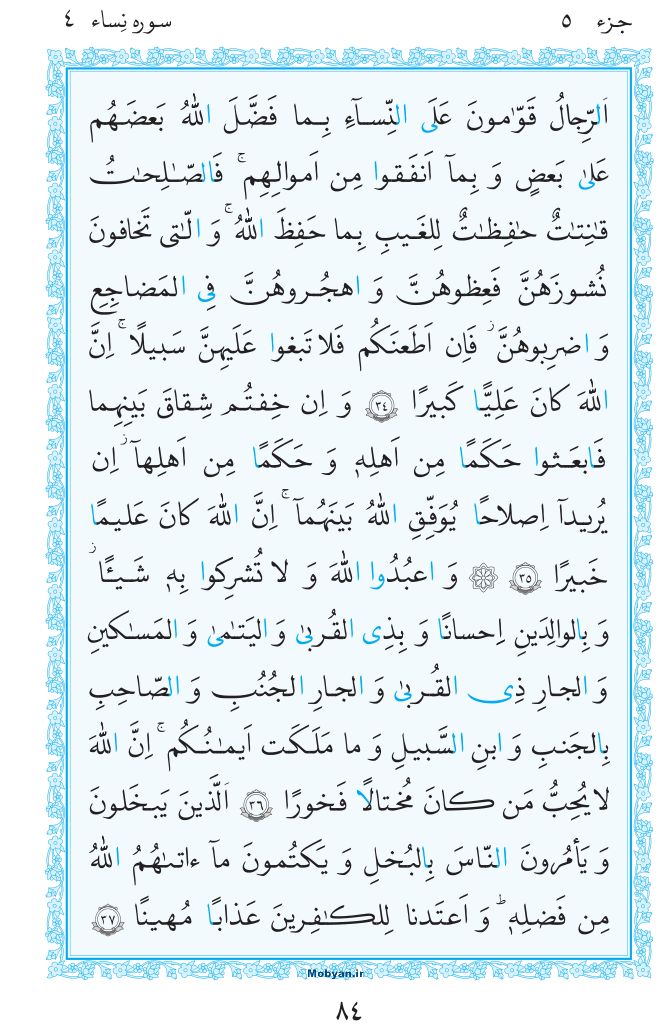 جزء ٥
سوره نِساء ٤
اَلرِّجالُ قَوّٰمونَ عَلَى النِّسآءِ بِما فَضَّلَ اللهُ بَعضَهُم
عَلىٰ بَعضٍ وَ بِمآ اَنفَقوا مِن اَموالِهِم ۚ فَالصّٰلِحٰتُ
قٰنِتٰتٌ حٰفِظٰتٌ لِلغَيبِ بِما حَفِظَ اللهُ ۚ وَ الّٰتى تَخافونَ
نُشوزَهُنَّ فَعِظوهُنَّ وَ اهجُروهُنَّ فِى المَضاجِعِ
وَ اضرِبوهُنَّ ۖ فَاِن اَطَعنَكُم فَلا تَبغوا عَلَيهِنَّ سَبيلًا ۗ اِنَّ
اللهَ كانَ عَلِيًّا كَبيرًا ٣٤ وَ اِن خِفتُم شِقاقَ بَينِهِما
فَابعَثوا حَكَمًا مِن اَهلِهٖ وَ حَكَمًا مِن اَهلِهآ اِن
يُريدآ اِصلاحًا يُوَفِّقِ اللهُ بَينَهُمآ ۗ اِنَّ اللهَ كانَ عَليمًا
خَبيرًا ٣٥ ۞ وَ اعبُدُوا اللهَ وَ لا تُشرِكوا بِهٖ شَيـًٔا
وَ بِالوالِدَينِ اِحسانًا وَ بِذِى القُربىٰ وَ اليَتٰمىٰ وَ المَسٰكينِ
وَ الجارِ ذِى القُربىٰ وَ الجارِ الجُنُبِ وَ الصّاحِبِ
بِالجَنبِ وَ ابنِ السَّبيلِ وَ ما مَلَكَت اَيمٰنُكُم ۗ اِنَّ اللهَ
لا يُحِبُّ مَن كانَ مُختالًا فَخورًا ٣٦ اَلَّذينَ يَبخَلونَ
وَ يَأمُرونَ النّاسَ بِالبُخلِ وَ يَكتُمونَ مآ ءاتىٰهُمُ اللهُ
مِن فَضلِهٖ ۗ وَ اَعتَدنا لِلكٰفِرينَ عَذابًا مُهينًا ٣٧
Mobyan.ir
٨٤